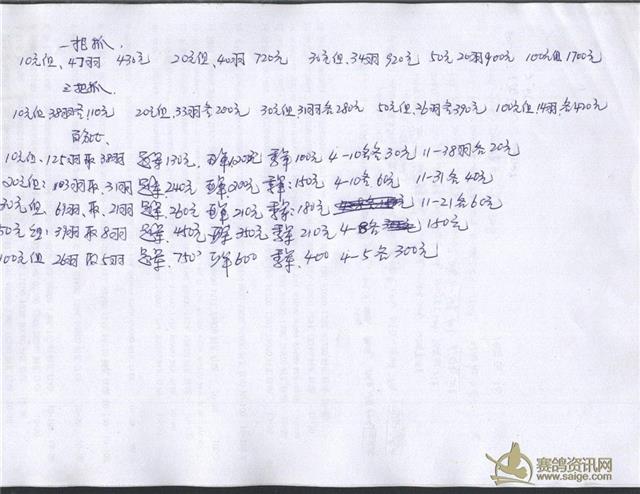 一把抓.
10元组、47羽 430元 20元组、40羽 720元 30元组、34羽 920元 50元 20羽 900元 100元组 1700元
三把抓.
10元组 38羽各110元 20元组、33羽各200元 30元组、31羽各280元 50元组、26羽各390元 100元组、14羽、各420元
百分比、
10元组、125羽取38羽 冠军130元、亚军120元 季军100元 4-10各30元 11-38羽各20元
20元组：103羽取、31羽 冠军、240元 亚军200元 季军：150元 4-10各60元 11-31各40元
30元组、69羽、取、21羽 冠军、260元 亚军210元 季军：180元 11-21各60元
50元组：39羽取8羽 冠军、450元 亚军350元 季军210元 4-8各 150元
100元组 26羽取5羽 冠军、750 亚军600 季军、400 4-5各300元
赛鸽资讯网
www.saige.com